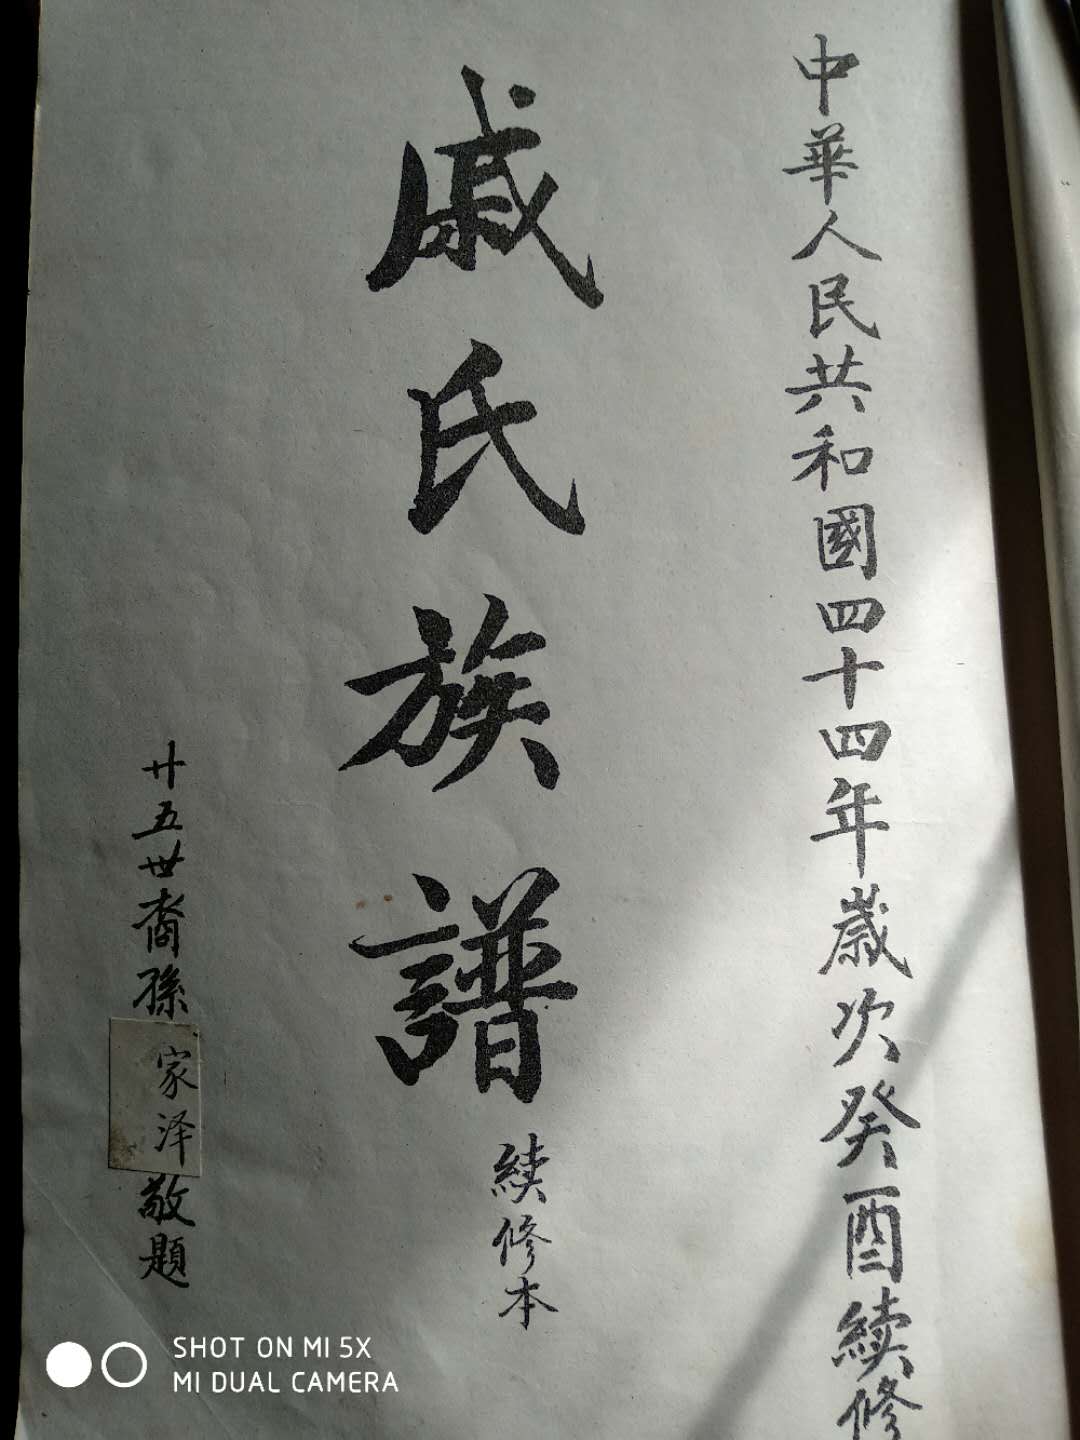 中華人民共和國四十四年歲次癸酉續修
戚氏族譜
續修本
廿五世裔孫家泽敬題
SHOT ON MI 5X
MI DUAL CAMERA